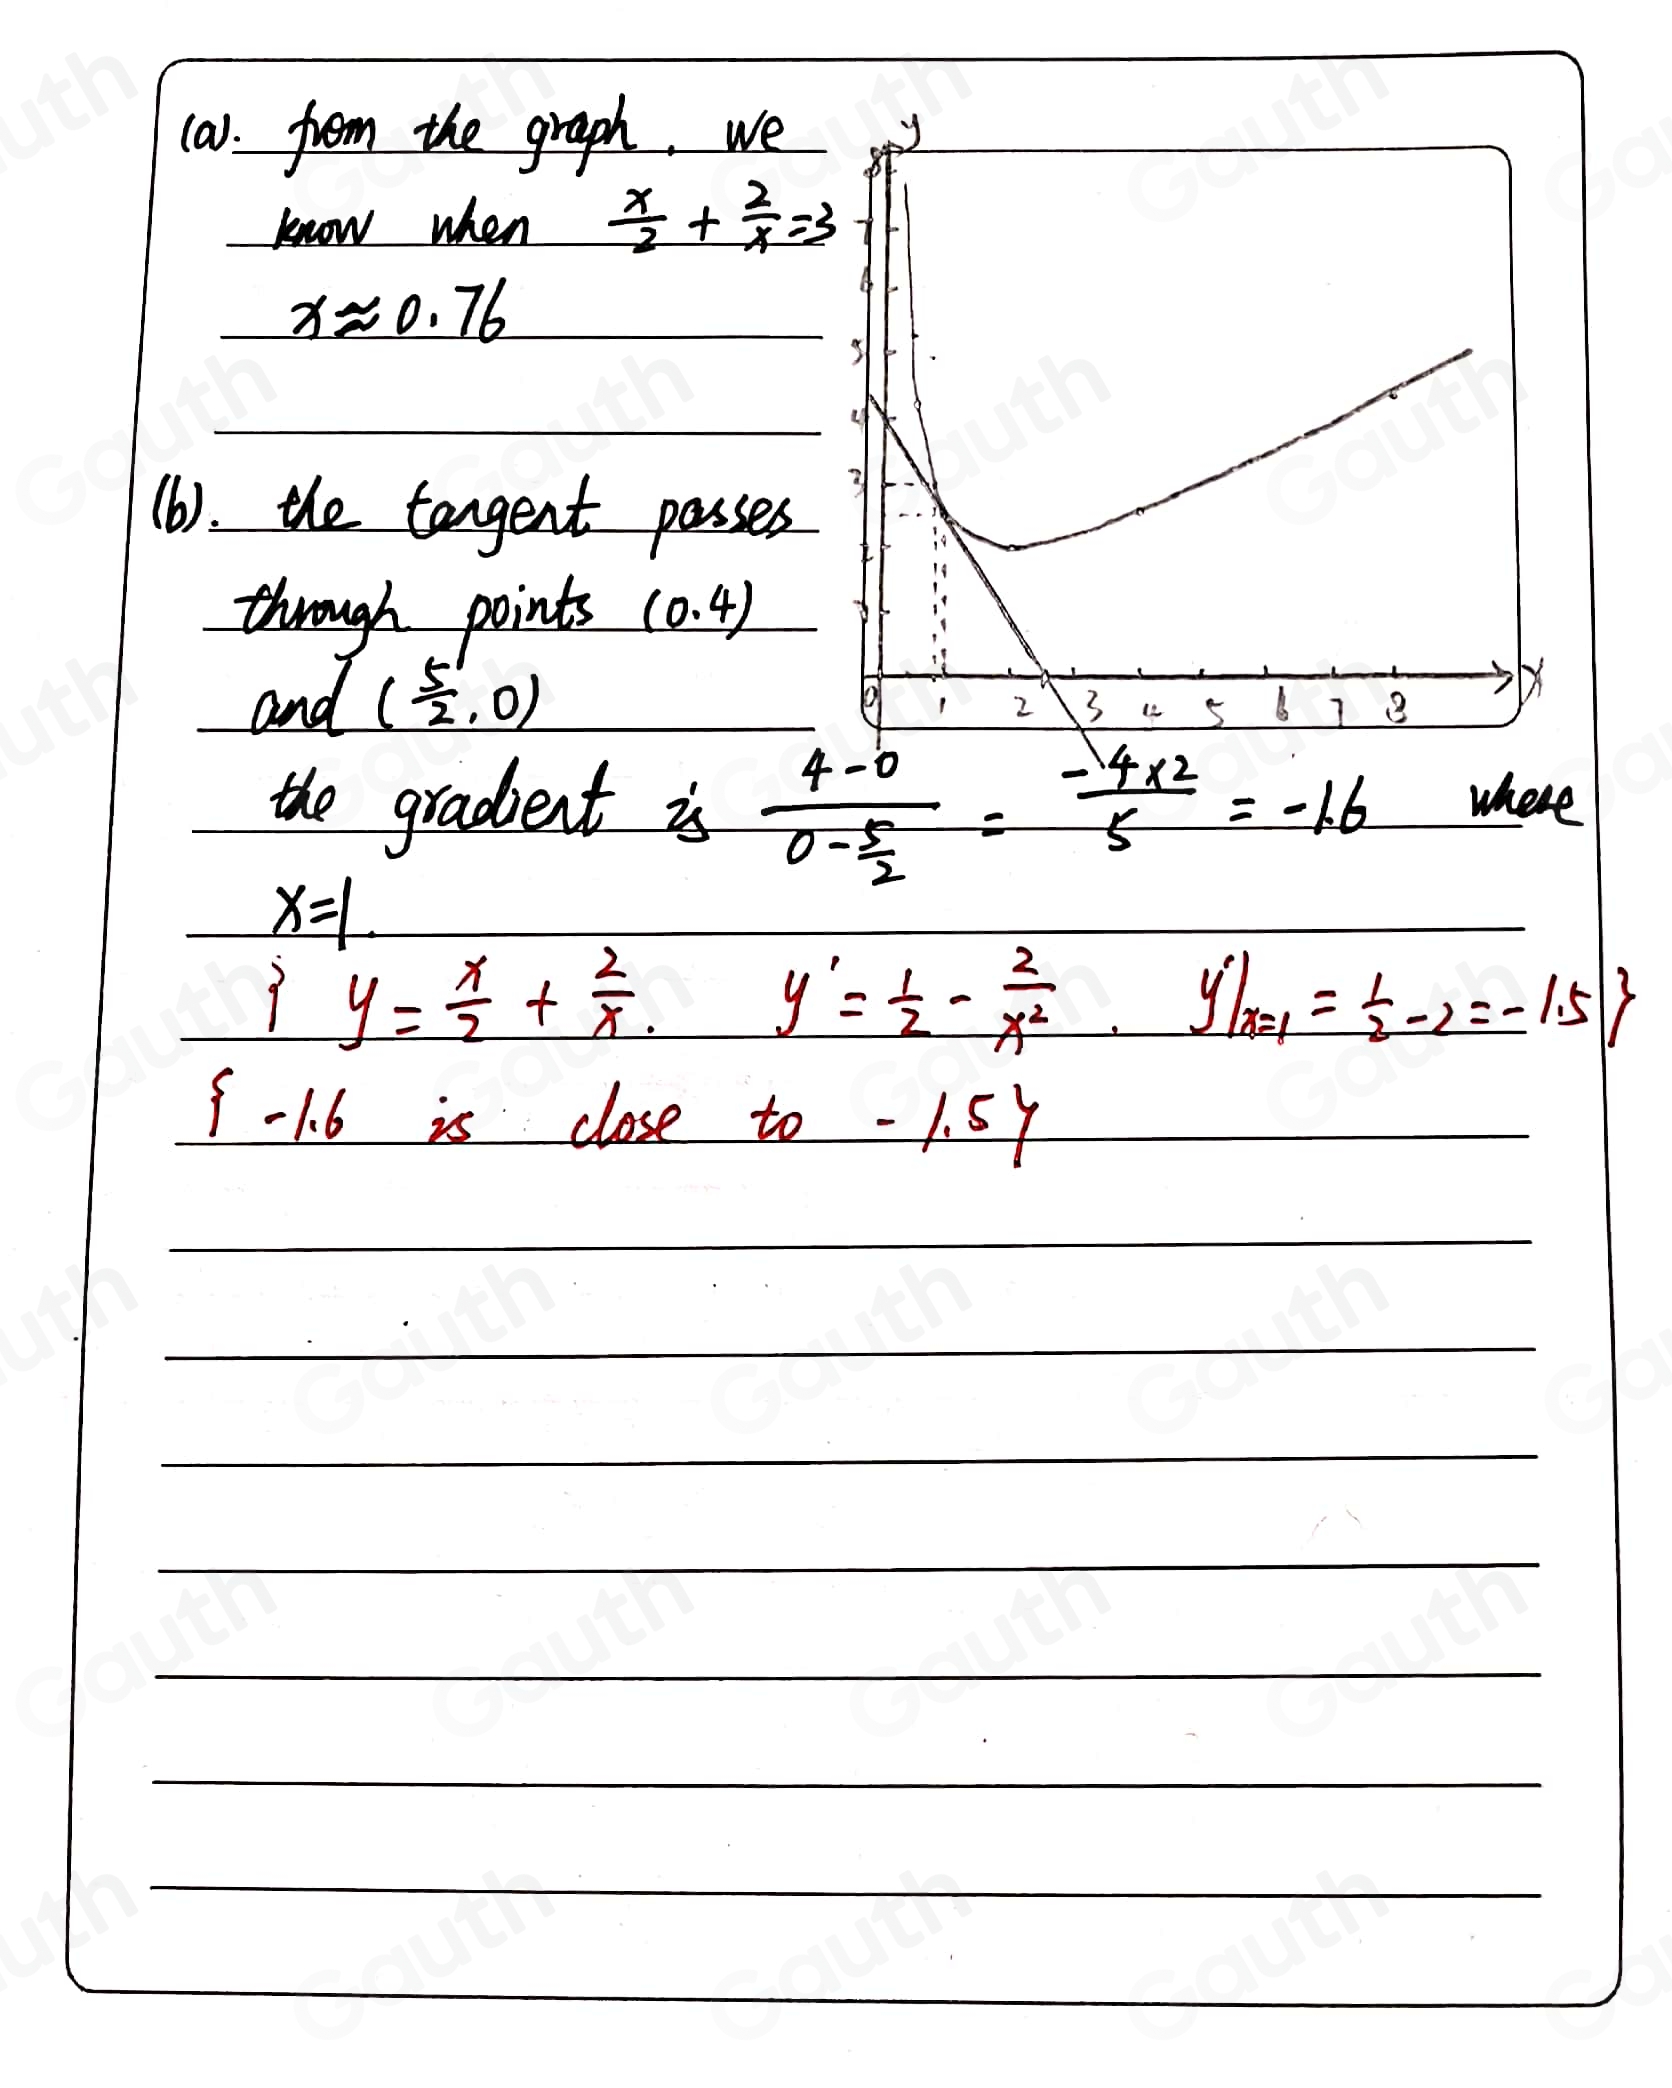 (a). from the graph, we
know when x/2 + 2/x = 3
x ≈ 0.76
(b). the tangent passes
through points (0.4)
and (5/2, 0)
the gradient is (4-0)/(0-5/2) = -(4×2)/5 = -1.6 where
x=1.
{ y = x/2 + 2/x. y' = 1/2 - 2/x². y'|x=1 = 1/2 - 2 = -1.5 }
{ -1.6 is close to -1.5 }
y
8
7
6
5
4
3
2
1
0 1 2 3 4 5 6 7 8 x
Gauth